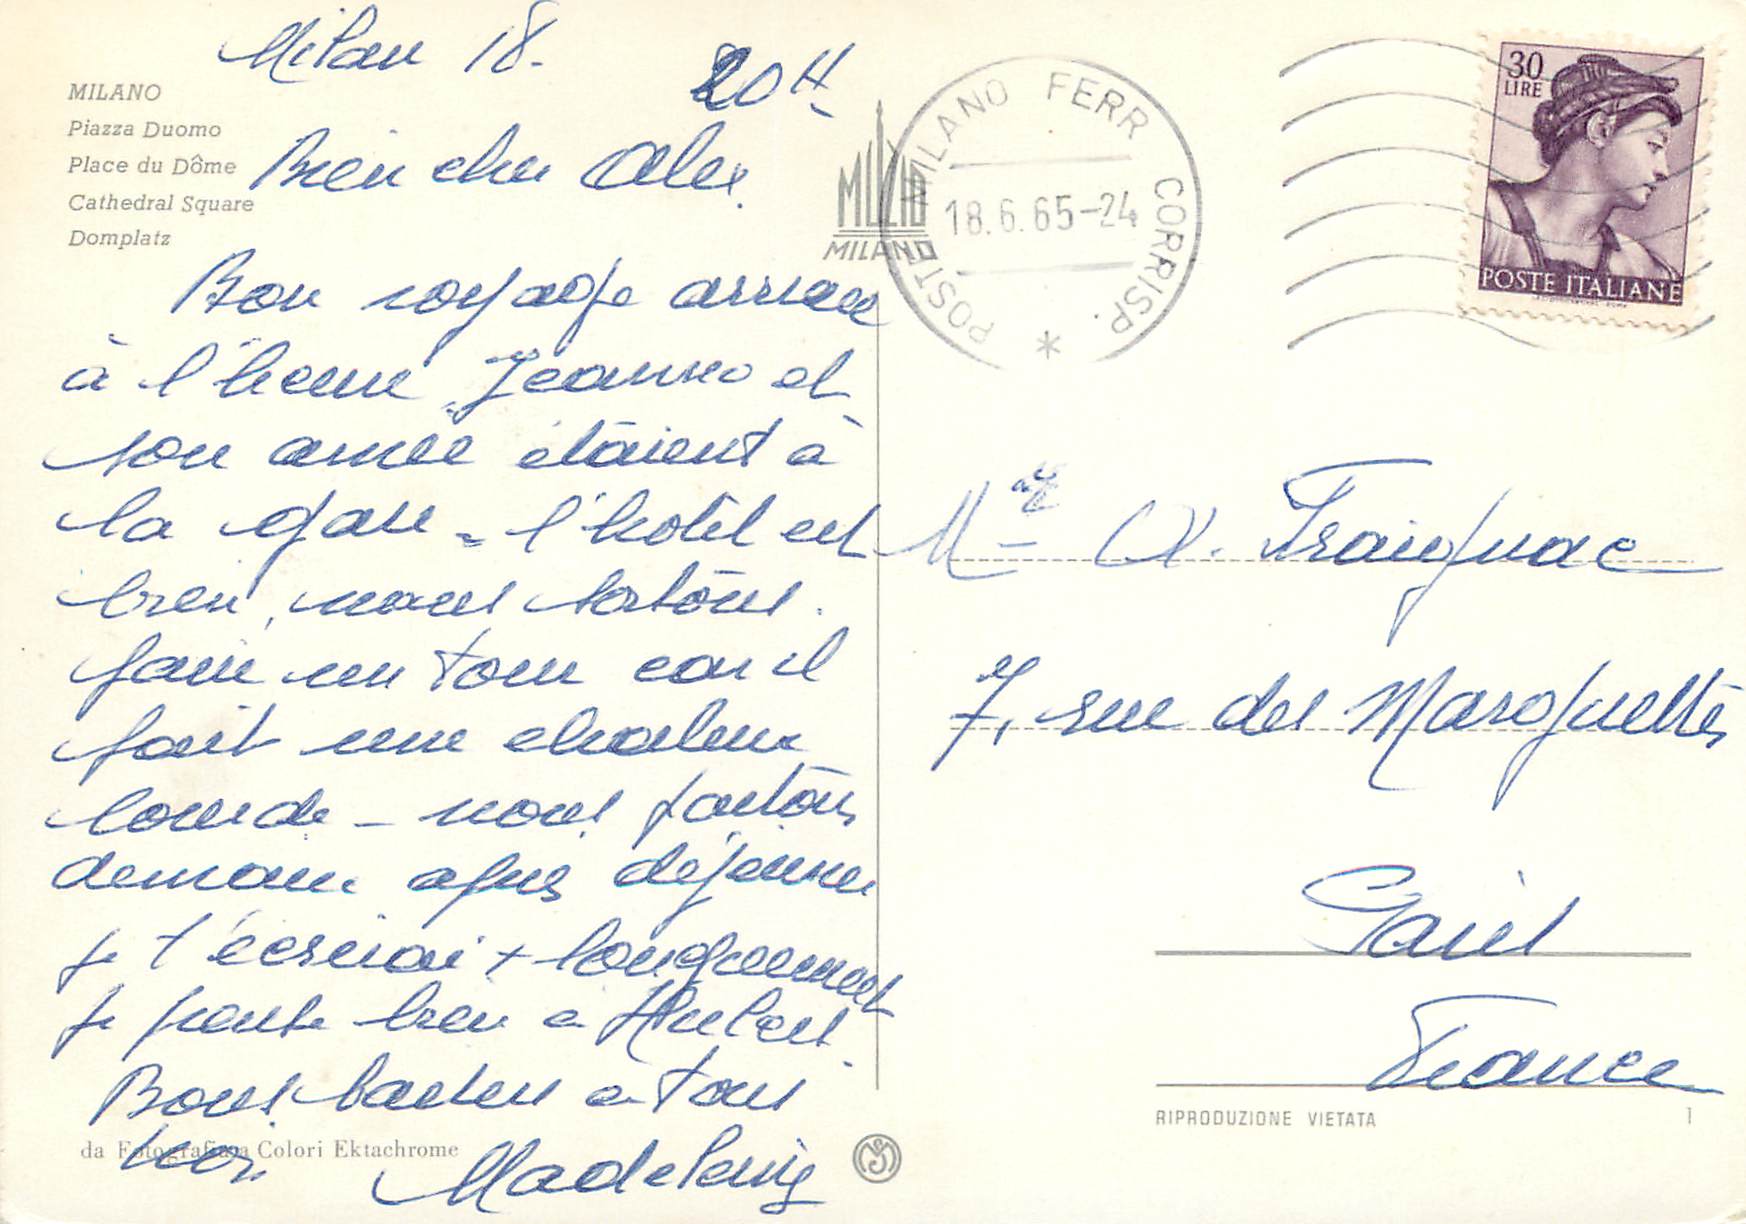 Milan 18.
20 H
MILANO
Piazza Duomo
Place du Dôme
Cathedral Square
Domplatz
Bien cher Alex.
Bon voyage arrivée
à l'heure Jeanno et
son amie étaient à
la gare - l'hotel est
bien, nous sortons.
faire un tour car il
fait une chaleur
lourde - nous partons
demain après déjeuner
je t'écrirai + longuement
je pense bien a Hubert.
Bons baisers a tous
Madeleine
da Fotografia a Colori Ektachrome
MUZIO
MILANO
POSTE MILANO FERR. CORRISP. *
18.6.65-24
30
LIRE
POSTE ITALIANE
M et A. Fraignac
7, rue des Marguettes
Paris
France
RIPRODUZIONE VIETATA
1